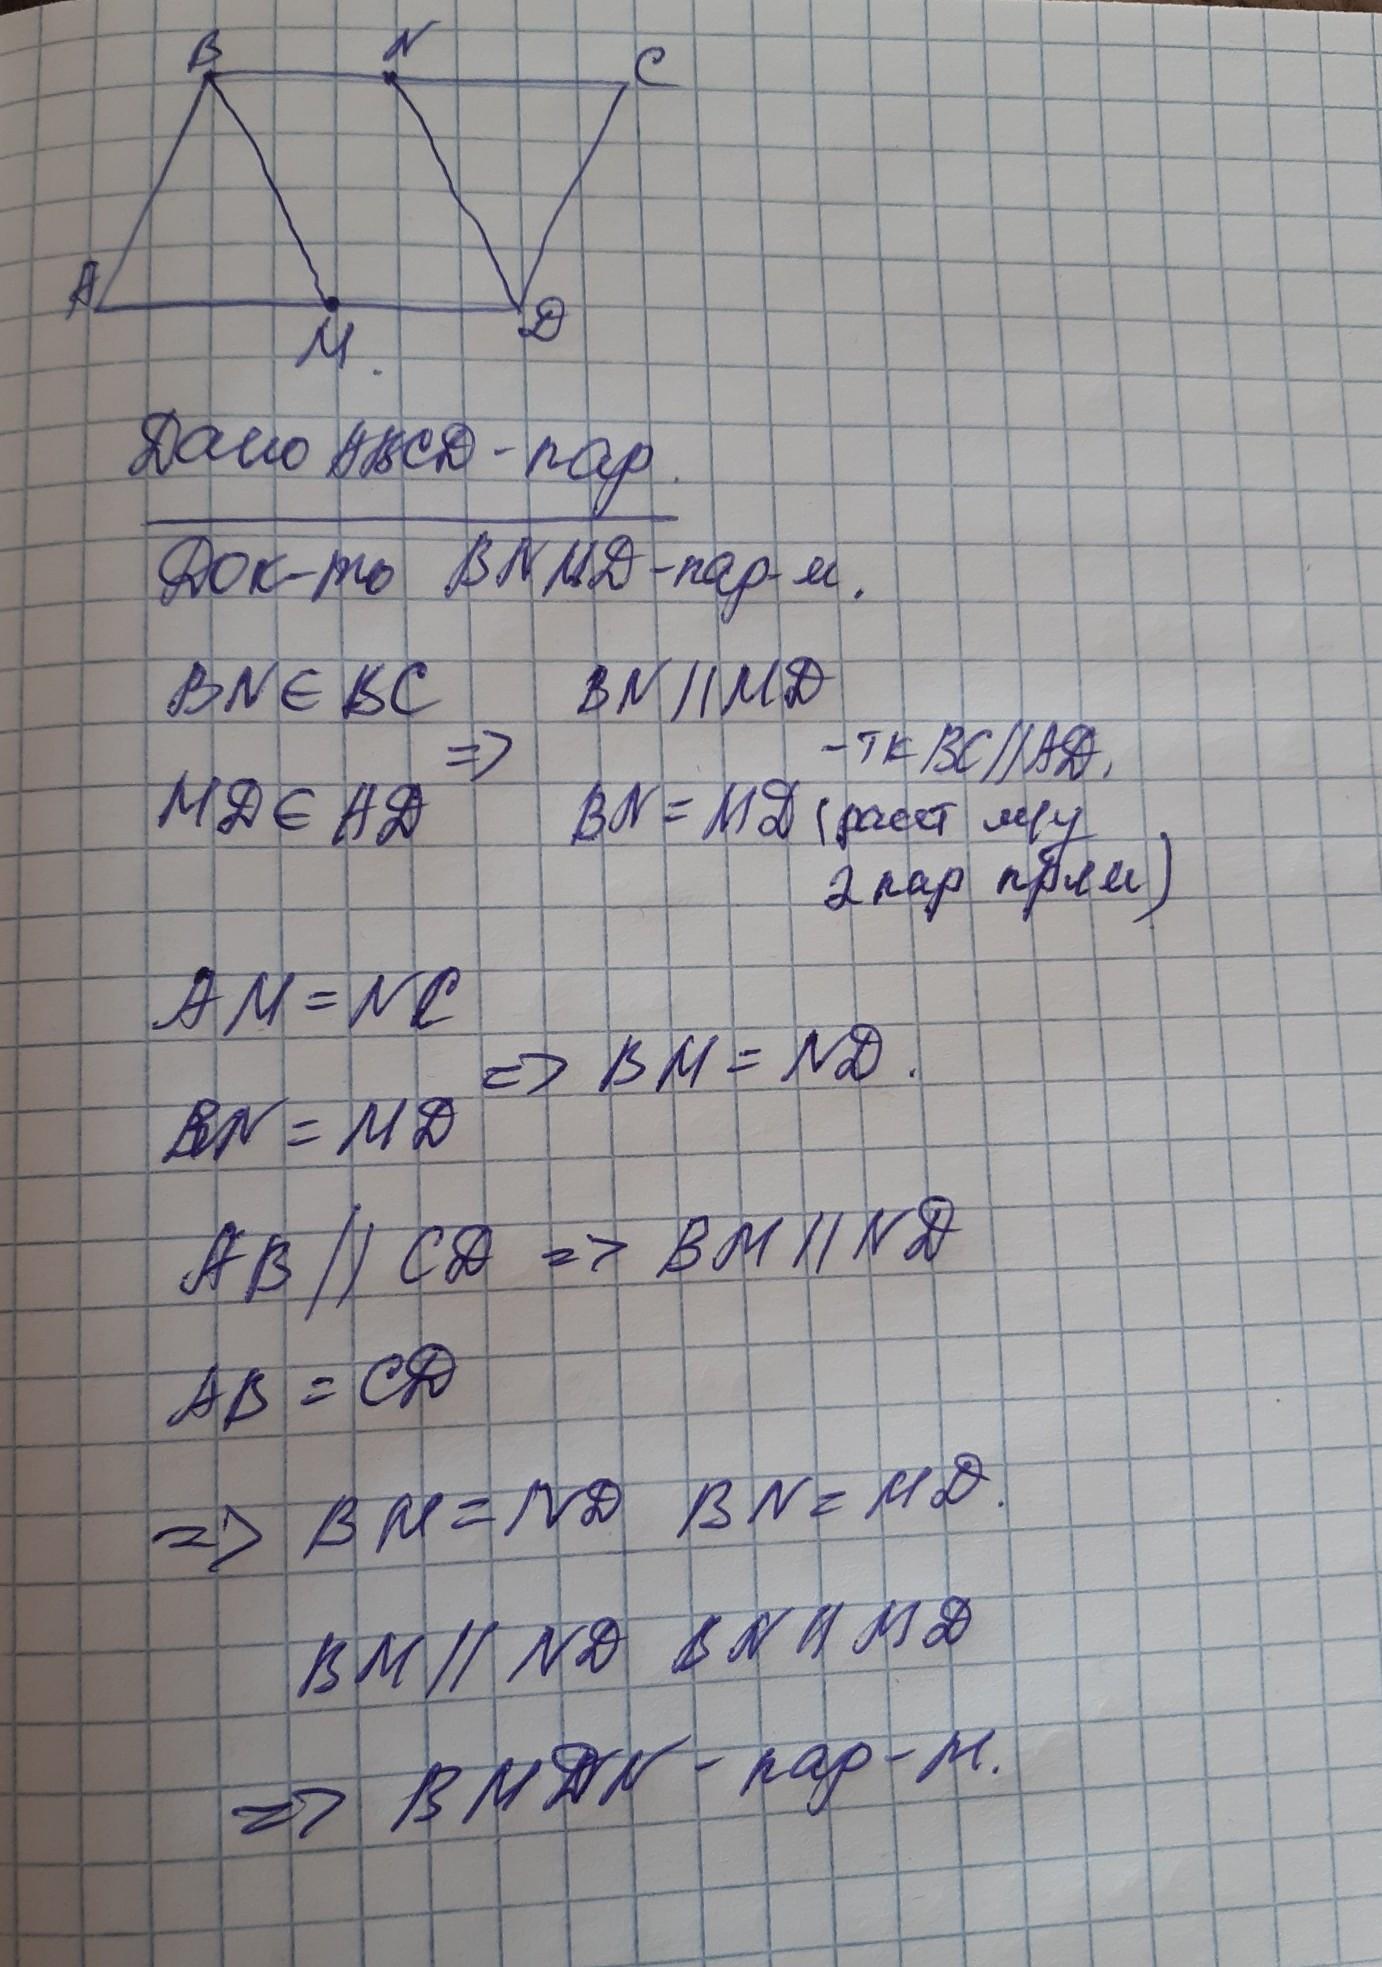 B N C
A M. D
Дано ABCD - пар.
Док-то BNMD - пар-м.
BN ∈ BC BN || MD
=> - тк BC || AD,
MD ∈ AD BN = MD (расст м/у
2 пар прям)
AM = NC
=> BM = ND.
BN = MD
AB || CD => BM || ND
AB = CD
=> BM = ND BN = MD.
BM || ND BN || MD
=> BMDN - пар-м.